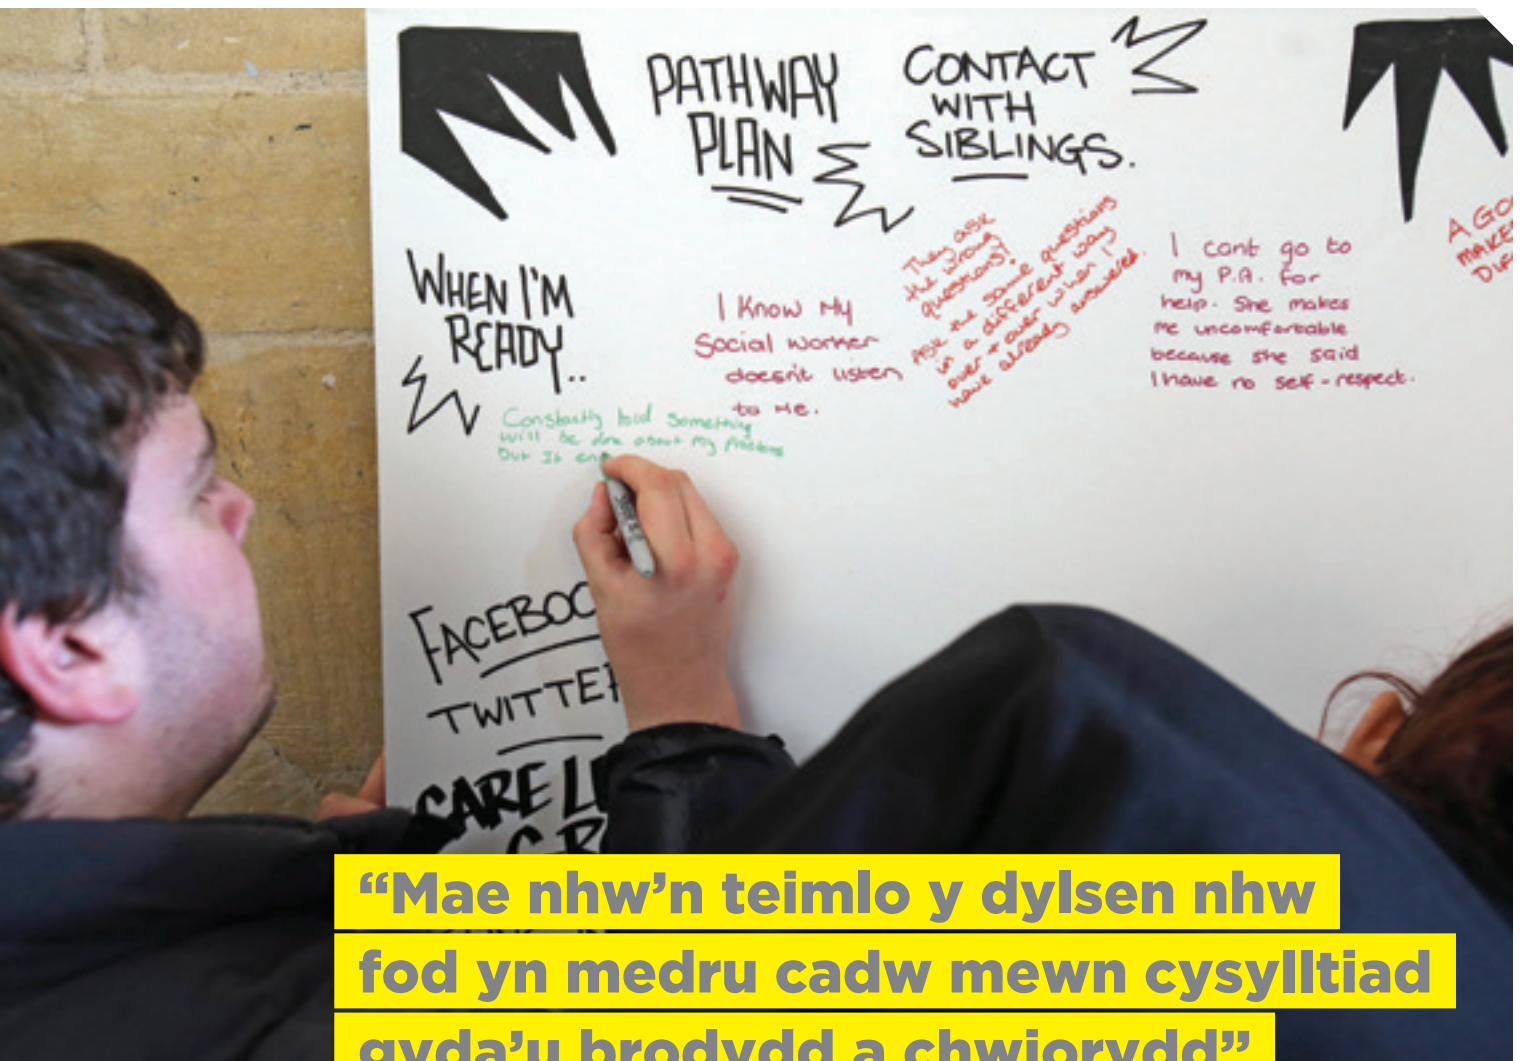 PATHWAY
PLAN
CONTACT
WITH
SIBLINGS.
WHEN I'M
READY..
I Know My
Social worker
doesn't listen
to me.
They ask
the wrong
questions!
Ask the same questions
in a different way
over + over when I
have already answered.
I cant go to
my P.A. for
help. She makes
me uncomfortable
because she said
I have no self-respect.
A GO
MAKE
DIF
Constantly told Something
will be done about My Problems
but It en
FACEBOO
TWITTE
CARE L
“Mae nhw’n teimlo y dylsen nhw
fod yn medru cadw mewn cysylltiad
gyda’u brodydd a chwiorydd”